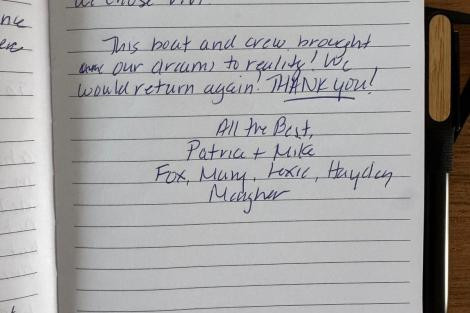 nce
we chose
This boat and crew brought
our dreams to reality! We
would return again! THANK you!
All the Best,
Patricia + Mike
Fox, Mary, Lexie, Hayden
Meagher